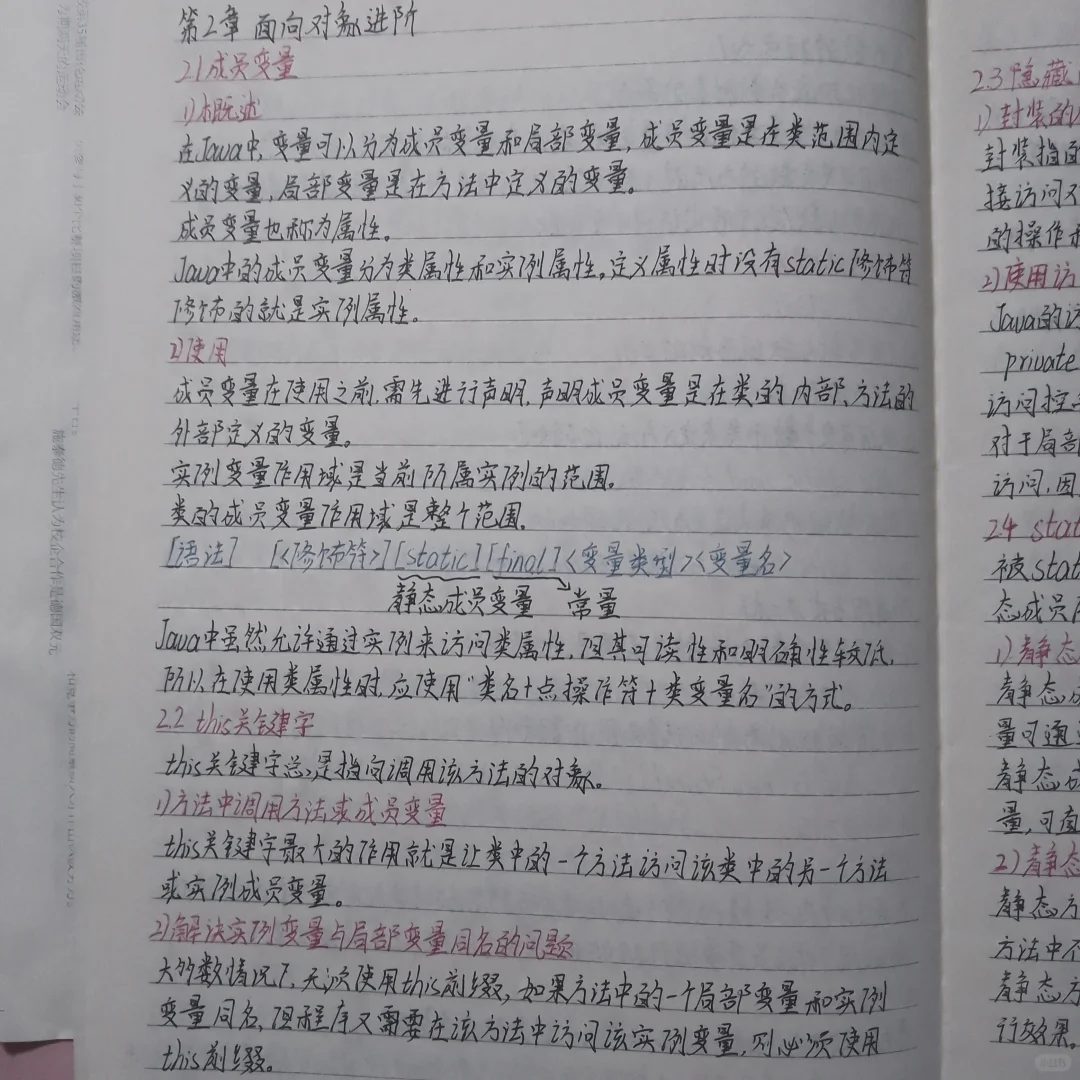 第2章 面向对象进阶
2.1 成员变量
1)概述
在Java中,变量可以分为成员变量和局部变量,成员变量是在类范围内定
义的变量,局部变量是在方法中定义的变量。
成员变量也称为属性。
Java中的成员变量分为类属性和实例属性。定义属性时没有static修饰符
修饰的就是实例属性。
2)使用
成员变量在使用之前,需先进行声明,声明成员变量是在类的内部、方法的
外部定义的变量。
实例变量作用域是当前所属实例的范围。
类的成员变量作用域是整个范围。
[语法] [<修饰符>][static][final]<变量类型><变量名>
静态成员变量 常量
Java中虽然允许通过实例来访问类属性,但其可读性和明确性较低,
所以在使用类属性时,应使用“类名+点操作符+类变量名”的方式。
2.2 this关键字
this关键字总是指向调用该方法的对象。
1)方法中调用方法或成员变量
this关键字最大的作用就是让类中的一个方法访问该类中的另一个方法
或实例成员变量。
2)解决实例变量与局部变量同名的问题
大多数情况下,无须使用this前缀,如果方法中的一个局部变量和实例
变量同名,但程序又需要在该方法中访问该实例变量,则必须使用
this前缀。
2.3 隐藏
1)封装的
封装指的
接访问
的操作
2)使用访
Java的访
private
访问控
对于局部
访问,因
2.4 stat
被stat
态成员
1)静态
静态成
量可通
静态成
量,可直
2)静态
静态方
方法中不
静态方
行效果。
施泰德先生认为校企合作是德国双元